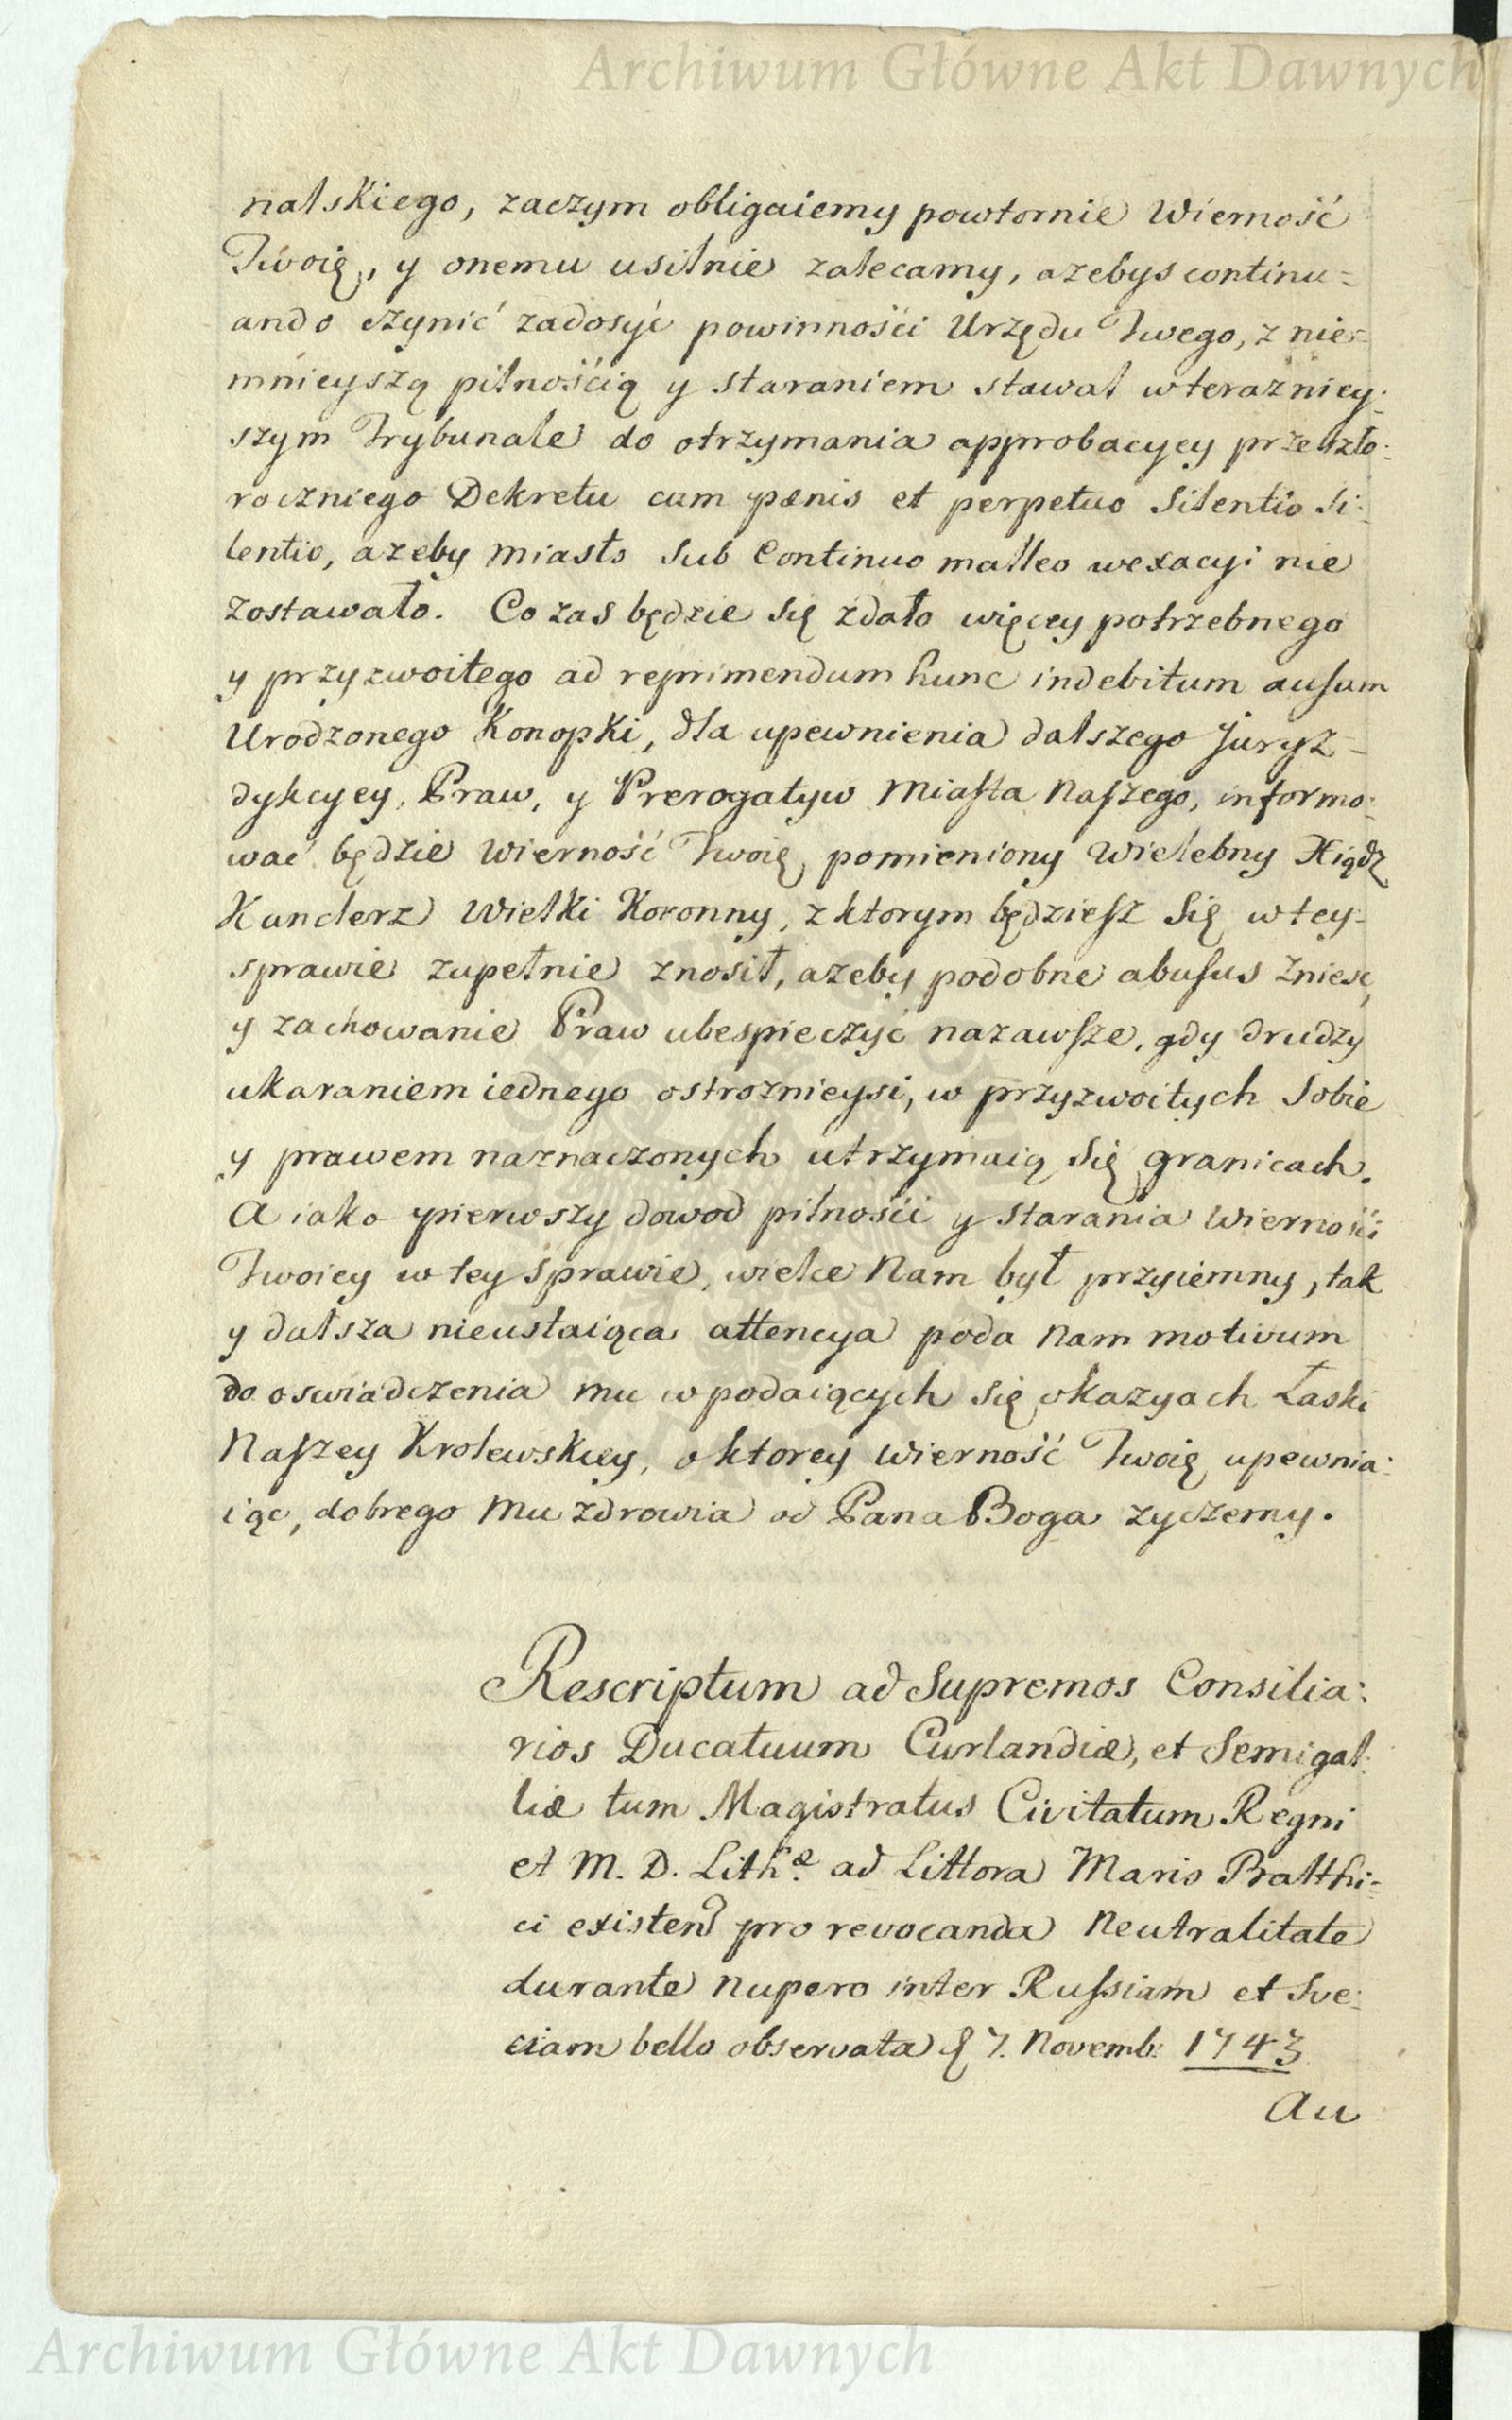 Archiwum Główne Akt Dawnych
nalskiego, zaczym obligaiemy powtornie Wierność
Twoię, y onemu usilnie zalecamy, azebys continu=
ando czynić zadosyć powinnośći Urzędu Twego, z nie=
mnieyszą pilnośćią y staraniem stawał w terazniey:
szym Trybunale do otrzymania approbacyey przeszło:
roczniego Dekretu cum pœnis et perpetuo Silentio Si:
lentio, azeby Miasto Sub Continuo malleo wexacyi nie
zostawało. Co zas będzie się zdało więcey potrzebnego
y przyzwoitego ad reprimendum hunc indebitum ausum
Urodzonego Konopki, dla upewnienia dalszego Juryz=
dykcyey, Praw, y Prerogatyw Miasta Naszego, informo:
wać będzie Wierność Twoię pomieniony Wielebny Xiądz
Kanclerz Wielki Koronny, z ktorym będziesz Się w tey=
sprawie zupełnie znosił, azeby podobne abusus znieść
y zachowanie Praw ubespieczyć nazawsze, gdy drudzy
ukaraniem iednego ostroznieysi, w przyzwoitych Sobie
y prawem naznaczonych utrzymaią Się granicach.
A iako pierwszy dowod pilnośći y starania Wiernośći
Twoiey w tey Sprawie, wielce Nam był przyiemny, tak
y dalsza nieustaiąca attencya poda Nam motivum
do oswiadczenia mu w podaiących Się okazyach Łaski
Naszey Krolewskiey, o ktorey Wierność Twoię upewnia:
iąc, dobrego Mu zdrowia od Pana Boga zyczemy.
Rescriptum ad Supremos Consilia:
rios Ducatuum Curlandiæ, et Semigal:
liæ tum Magistratus Civitatum Regni
et M. D. Lith.æ ad Littora Maris Balthi=
ci existen pro revocanda Neutralitate
durante nupero inter Russiam et Sve:
ciam bello observata 7. Novemb: 1743
Au
Archiwum Główne Akt Dawnych